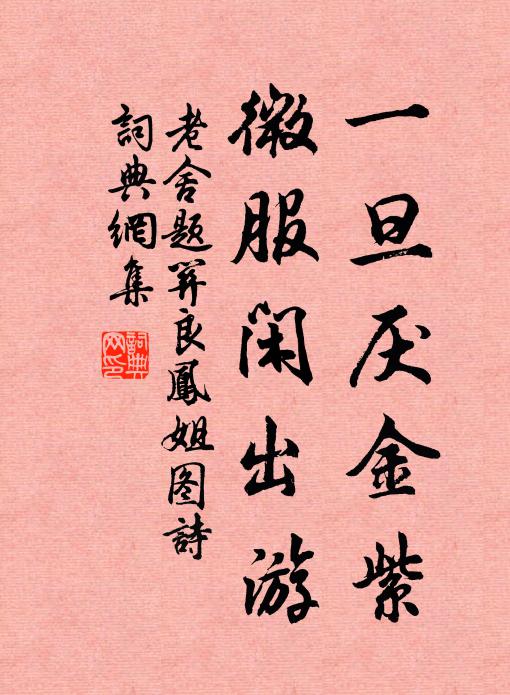 一旦厌金紫
微服闲出游
老舍题羿良鳳姐图詩
詞典網集
詞典网印